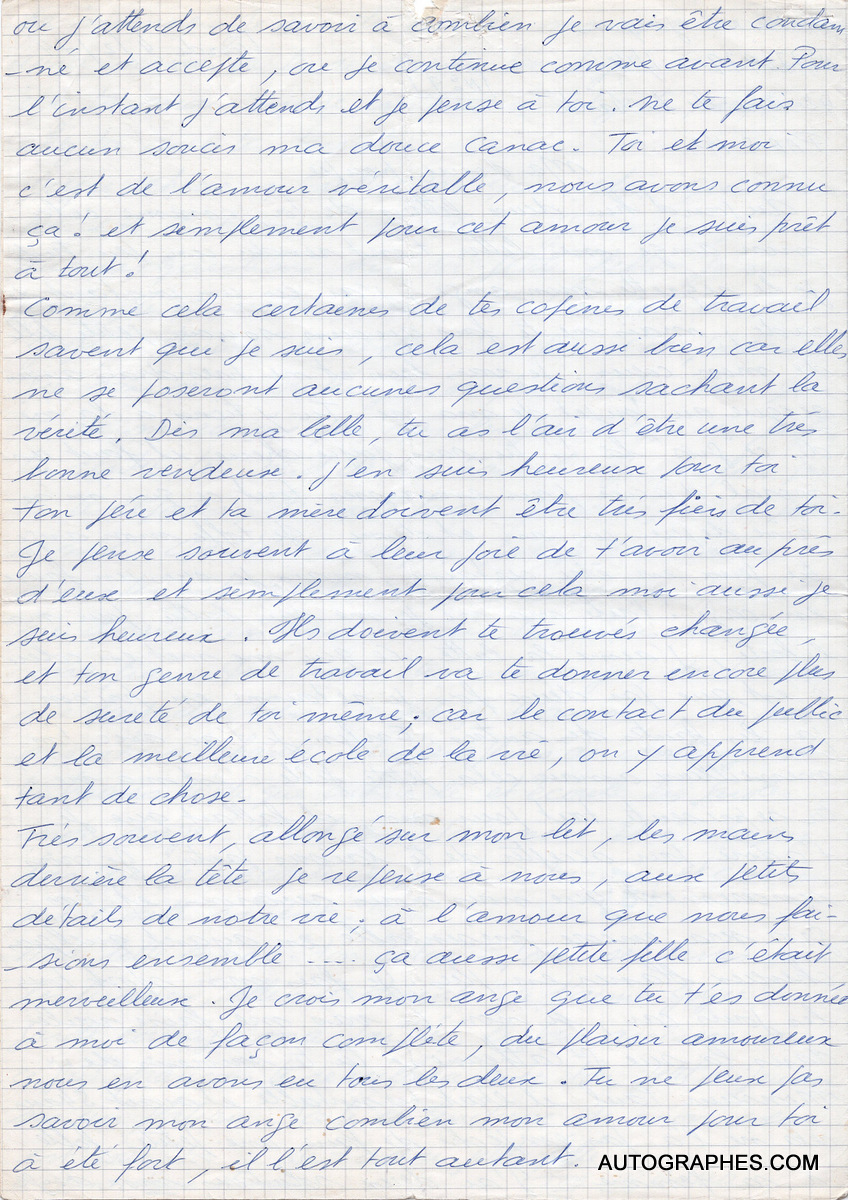 ou j'attends de savoir à combien je vais être condam
-né et accepte, ou je continue comme avant. Pour
l'instant j'attends et je pense à toi. ne te fais
aucun soucis ma douce Canac. Toi et moi
c'est de l'amour véritable, nous avons connu
ça! et simplement pour cet amour je suis prêt
à tout!
Comme cela certaines de tes copines de travail
savent qui je suis, cela est aussi bien car elles
ne se poseront aucunes questions sachant la
vérité. Dis ma belle, tu as l'air d'être une très
bonne vendeuse. J'en suis heureux pour toi
ton père et ta mère doivent être très fiers de toi.
Je pense souvent à leur joie de t'avoir au près
d'eux et simplement pour cela moi aussi je
suis heureux. Ils doivent te trouvés changée,
et ton genre de travail va te donner encore plus
de sureté de toi même; car le contact du public
et la meilleure école de la vie, on y apprend
tant de chose.
Très souvent, allongé sur mon lit, les mains
derrière la tête je repense à nous, aux petits
détails de notre vie; à l'amour que nous fai-
-sions ensemble .... ça aussi petite fille c'était
merveilleux. Je crois mon ange que tu t'es donnée
à moi de façon complète, du plaisir amoureux
nous en avons eu tous les deux. Tu ne peux pas
savoir mon ange combien mon amour pour toi
à été fort, il l'est tout autant.
AUTOGRAPHES.COM